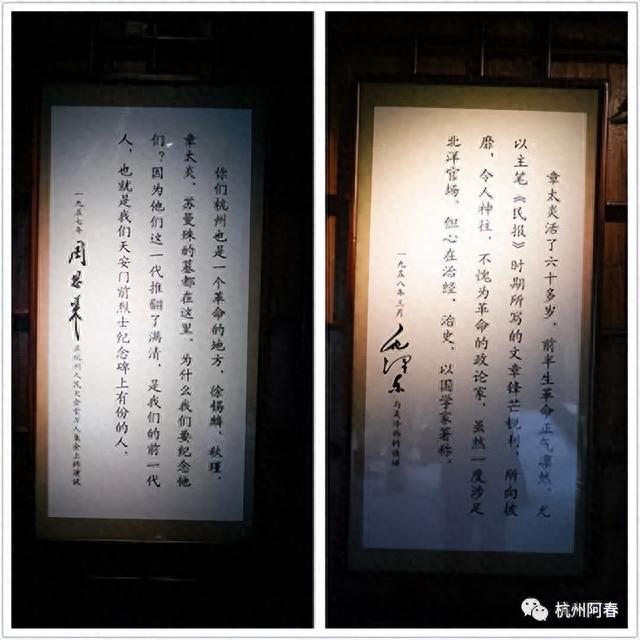 你们杭州也是一个革命的地方，徐锡麟、秋瑾、
章太炎、苏曼殊的墓都在这里，为什么我们要纪念他
们？因为他们这一代推翻了满清，是我们的前一代
人，也就是我们天安门前烈士纪念碑上有份的人。
一九五七年 周恩来 在杭州人民大会堂万人集会上的演说
章太炎活了六十多岁，前半生革命正气凛然，尤
以主笔《民报》时期所写的文章锋芒锐利，所向披
靡，令人神往，不愧为革命的政论家，虽然一度涉足
北洋官场，但心在治经、治史，以国学家著称。
一九五八年三月 毛泽东
杭州阿春